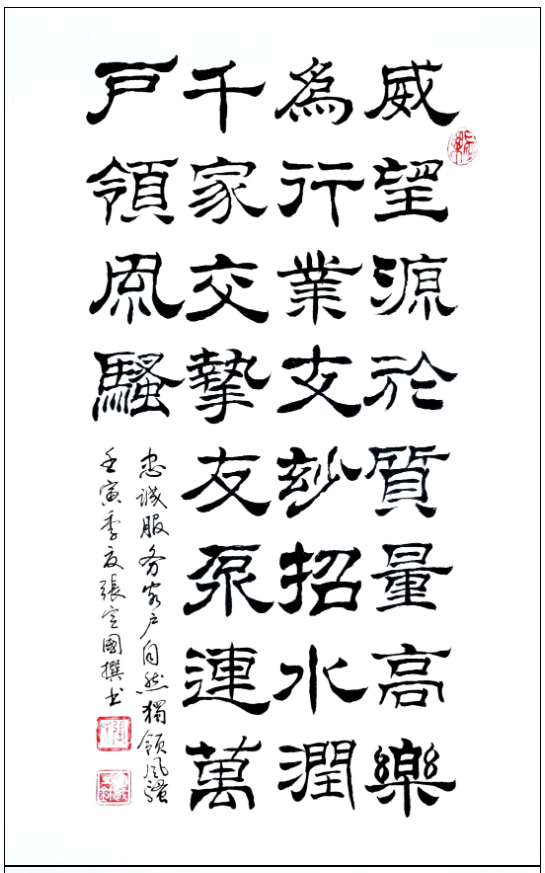 威望源於質量高樂
為行業支玅招水潤
千家交摯友泵連萬
戶領風騷
忠誠服务客户自然獨領風骚
壬寅季夏張定國撰书